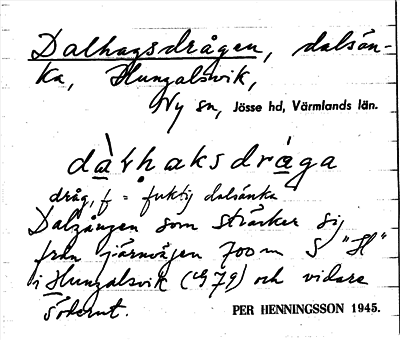 Dalhagsdrågen, dalsän-
ka, Hungalsvik,
Ny sn, Jösse hd, Värmlands län.
dàɽhaksdråga
dråg, f = fuktig dalsänka
Dalgången som sträcker sig
från järnvägen 700 m S "H"
i Hungalsvik (G 79) och vidare
söderut.
PER HENNINGSSON 1945.